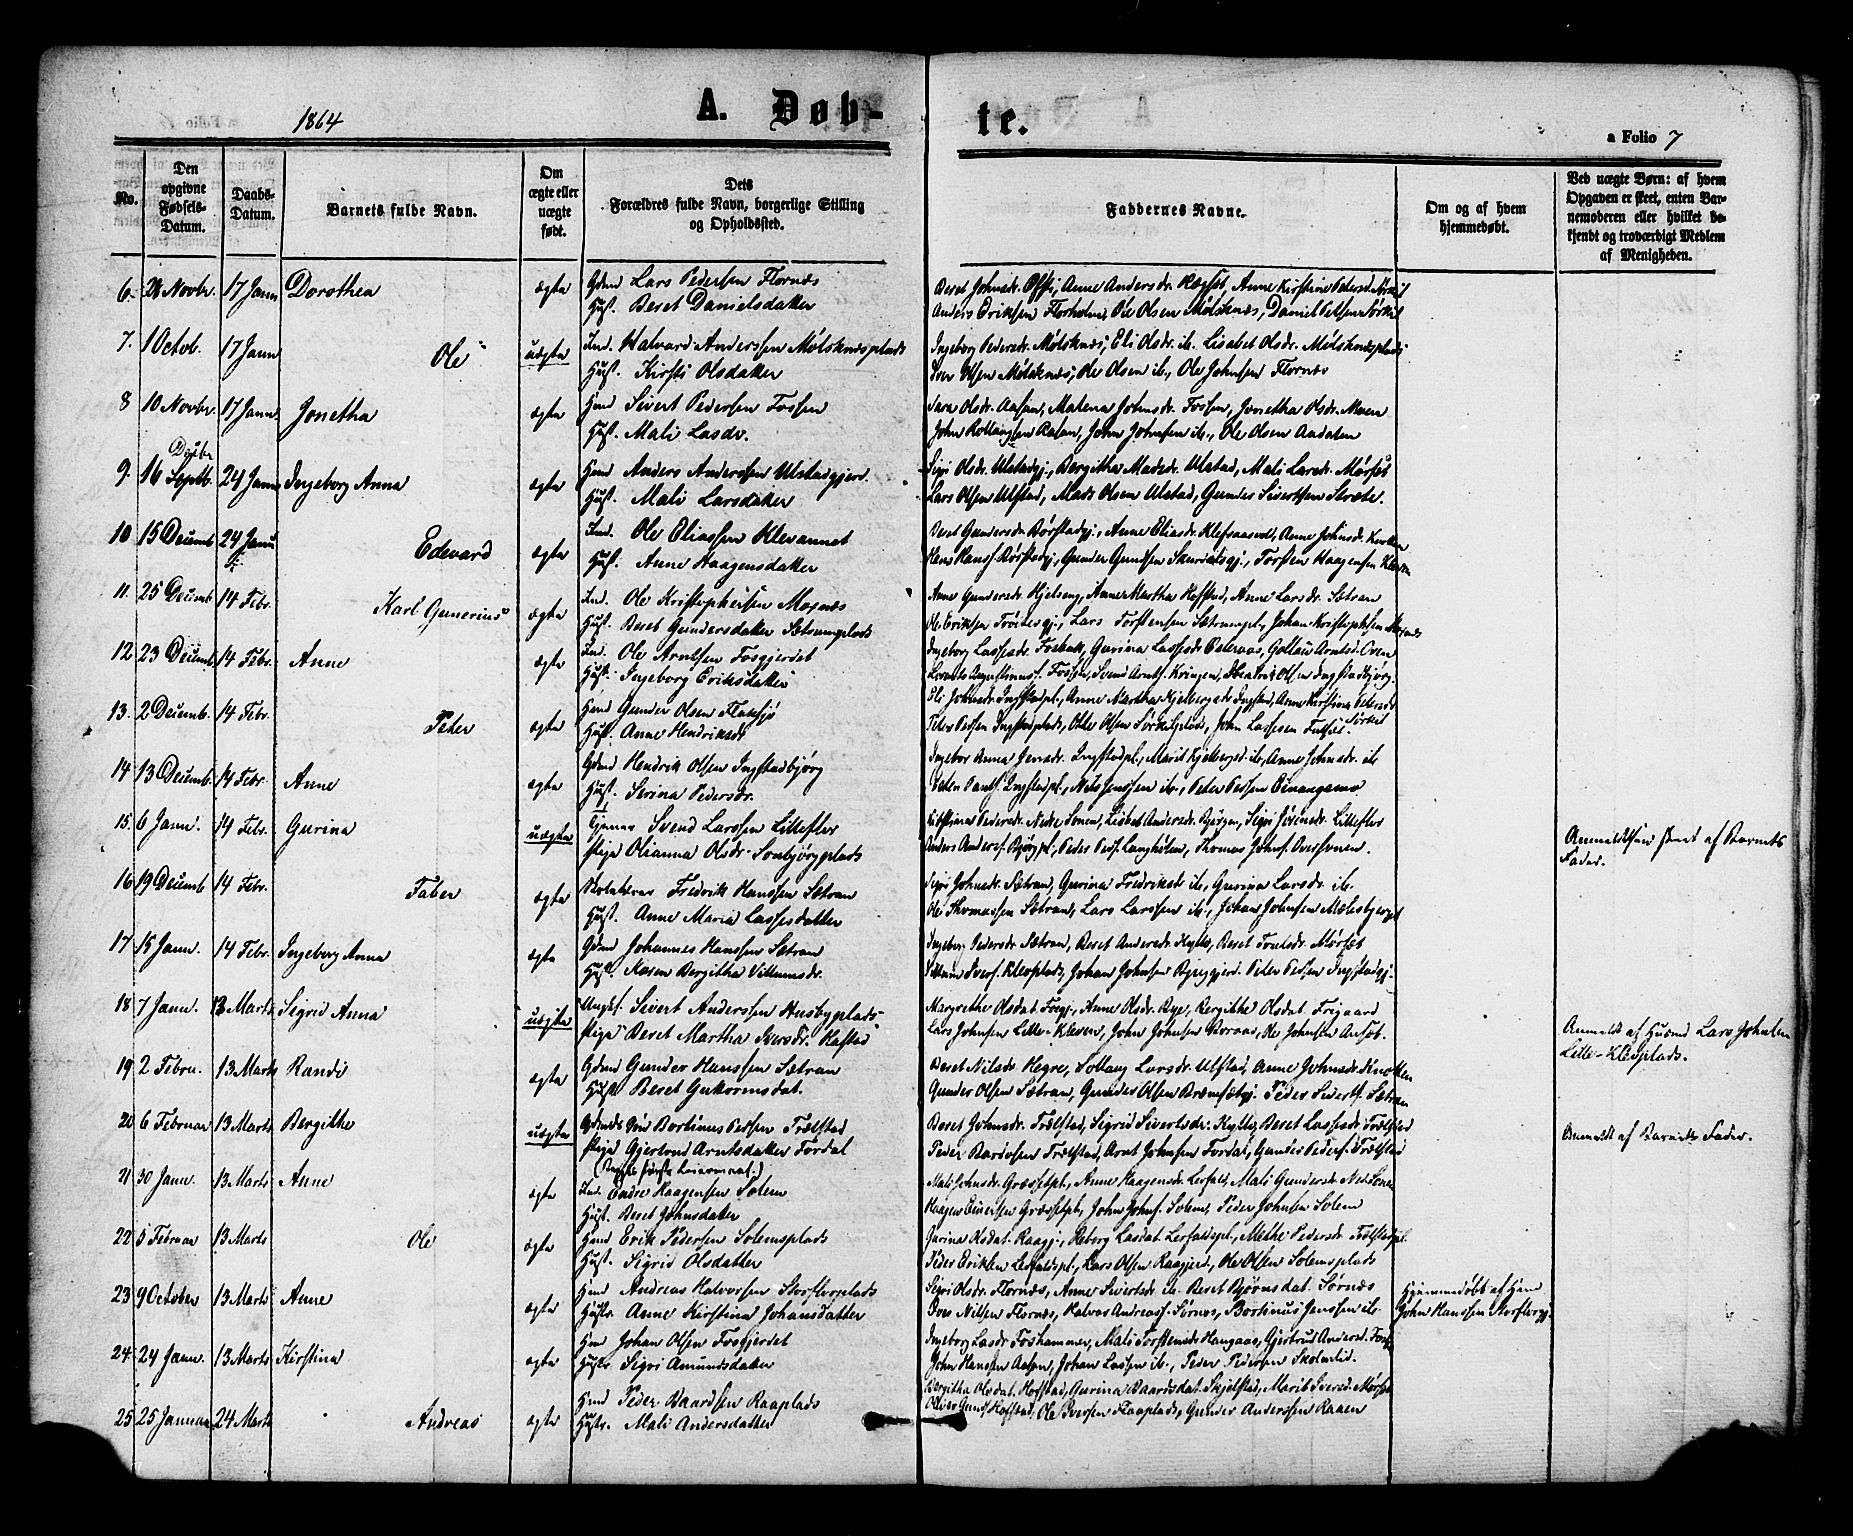 1864
A. Døb-
te.
a Folio 7
No.
Den opgivne Fødsels-Datum.
Daabs-Datum.
Barnets fulde Navn.
Om ægte eller uægte født.
Dets Forældres fulde Navn, borgerlige Stilling og Opholdssted.
Faddernes Navne.
Om og af hvem hjemmedøbt.
Ved uægte Børn: af hvem Opgaven er skeet, enten Barnemoderen eller hvilket bekjendt og troværdigt Medlem af Menigheden.
6. 28 Novbr. 17 Janu Dorothea ægte Gdmd Lars Pedersen Flornæs
Hust. Beret Danielsdatter
Beret Johnsdr. Anne Andersdr. Anne Kirstine Pedersd.
Anders Eriksen Florholmen, Ole Olsen Mølsknæs, Daniel
7. 1 Octob. 17 Janu Ole uægte Ind. Halvard Anderssen Mølsknæsplads
Hust. Kirsti Olsdatter
Ingeborg Pedersdr. Mølsknæs, Eli Olsdr. ib. Lisabet Olsdr. Mølsknæsplads
Iver Olsen Mølsknæs, Ole Olsen ib., Ole Johnsen Flornæs
8 10 Novbr. 17 Janu. Jonetha ægte Hmd Sivert Pedersen Fossen
Hust. Mali Lasdr.
Sara Olsdr. Aasen, Matena Johnsdr. Fossen, Jonetha Olsdr. Moen
John Johnsen ib., Ole Olsen Aadalen
Decbr
9. 16 Septb. 24 Janu Ingeborg Anna ægte Hmd Anders Anderssen Ulstadgjerd.
Hust. Mali Larsdatter
Sigri Olsdr. Ulstadgj., Bergitha Madsdr. Ulstad, Mali Larsdr. Mørset
Lars Olsen Ulstad, Mads Olsen Ulstad, Gunder Sivertsen
10 15 Decemb 24 Janu Edevard ægte Ind. Ole Eliassen Klevamnet
Hust. Anne Haagensdatter
Beret Gundersdr. Børstadgj., Anne Eliasdr. Anne Johnsdr.
Hans Hans. Børstadgj., Gunder Torsten Haagensen
11. 25 Decemb 14 Febr. Karl Gunerius ægte Ind. Ole Kristophersen Moxnæs
Hust. Beret Gundersdatter Sætranplads
Ane Gundersdr. Hjelseng, Anne Martha Hofstad, Anne Larsdr. Sætran
Ole Eriksen Lars Torstensen Sætranpl., Johan Kristophersen Moxnæs
12 23 Decemb. 14 Febr. Anne ægte Ind. Ole Arntsen Fosgjerdet
Hust. Ingeborg Eriksdatter
Ingeborg Lassesdr. Fosbak, Gurina Lassesdr. Østeraas, Arntsd. Oven
Fossen, Svend Arntf. Kringen, Olsen Ingstadbjørg
13. 2 Decemb. 14 Febr. Peter ægte Hmd Gunder Olsen Flaksjø
Hust. Anne Hendriksdr
Eli Johnsdr. Ingstadpl., Anne Martha Kjelbergsdr. Ingstad, Anne Kirstina Pedersdr.
Peter Pedersen Ingstadplads, Ole Olsen Sørkilplads, John Lassesen
Sørkil
14 13 Decemb. 14 Febr. Anne ægte Gdmd Hendrik Olsen Ingstadbjørg
Hust. Serina Pedersdr.
Ingebor Anna Jensdr. Ingstadpl., Marit Kjelbergsd. ib, Anne Johnsdr. ib
Ingstadpl., Nils Jenssen ib., Peter Pedersen
15. 6 Janu. 14 Febr. Gurina uægte Tjenes. Svend Larssen Litlefler
Pige Olianna Olsdr. Sonbjørgplads
Kirstina Pedersdr. Nedre Sonen, Lisbet Andersdr. Bjørgen, Sigri Litlefler
Anders Anders. Bjørgpl, Peder Peders. Langholen, Thomas Johns. Oversonen.
Anmeldelsen skeet af Barnets
Fader.
16 19 Decemb 14 Febr. Faber ægte Skolelærer Fredrik Hanssen Sætran
Hust. Anne Maria Lassesdatter
Sigri Johnsdr. Sætran, Gurina Fredriksdr. ib, Gurina Larsdr. ib.
Ole Thomassen Sætran, Lars Larssen ib., Johan Johnsen
17 15 Janu. 14 Febr. Ingeborg Anna ægte Gdmd Johannes Hanssen Sætran
Hust. Karen Bergitha Villumsdr.
Ingeborg Pedersdr. Sætran, Beret Andersdr. Hylle, Beret Mørset
Johan Johnsen Peter Pedersen Ingstadgj.
18 7 Janu. 13 Marts Sigrid Anna uægte Ungkl. Sivert Anderssen Husbyplads
Pige Beret Martha Iversdr. Hafstad
Margrethe Olsdat. Anne Olsdr. Bye, Bergitha Olsdat Frigaard
Lars Johnsen Lille-Kleven, John Johnsen Boraas, Ole Johnsen
Anmeldt af Husmd Lars Johnsen
Lille-Klevplads.
19 2 Febru. 13 Marts Randi ægte Gdmd Gunder Hanssen Sætran
Hust Beret Gutormsdat.
Beret Nilsdr. Hegre, Solloug Larsdr. Ulstad, Anne Johnsdr.
Gunder Olsen Sætran, Gunder Olsen Peder Sivertf. Sætran
20 6 Februar 13 Marts Bergithe uægte Gdmds Søn Bortinus Pedersen Trælstad
Pige Gjertrud Arntsdatter Fordal
Beret Johnsdr. Trælstad, Sigrid Sivertsdr. Hylle, Beret Lassesdr. Trælstad
Peder Baardsen Trælstad, Arnt Johnsen Fordal, Gunder Pedersf. Trælstad
Anmeldt af Barnets Fader.
21 30 Janu. 13 Marts Anne ægte Ind. Endre Haagensen Solem
Hust. Beret Johnsdatter
Mali Johnsdr. Græssetpl., Anne Haagensdr. Lerfald, Mali Gundersdr.
Haagen Einersen Græssetpl., John Johnf. Solem, Peder Johnsen Solem
22 5 Februar 13 Marts Ole ægte Hmd Erik Pedersen Solemsplads
Hust. Sigrid Olsdatter
Gurina Olsdat. Raagj., Lasdat Lerfaldspl., Methe Pedersdr.
Peder Eriksen Lerfaldspl., Lars Olsen Raagjerd., Ole Olsen Solemsplads
23 9 October 13 Marts Anne ægte Hmd Andreas Halvorsen Storflorplads
Hustr. Anne Kirstina Johansdatter
Sigri Olsdr. Flornæs, Anne Sivertsdr. ib. Beret Bjørnsdat. Sørnæs
Iver Nilsen Flornæs, Halvor Andreasf. Sørnæs, Bortinus Janssen ib
Hjemmedøbt af Hmd
John Hanssen
24. 24 Janu. 13 Marts Kirstina ægte Hmd Johan Olsen Fosgjerdet
Hustr. Sigri Amundsdatter
Ingeborg Lasdr. Foshammer, Mali Torstensdr. Haugaas, Gjertrud Andersd.
John Hanssen Aasen, Johan Lassen ib., Peder Pedersen
25 25 Januar 24 Marts Andreas ægte Hmd Peder Baardsen Raaplads
Hustr. Mali Andersdatter
Bergitha Olsdat. Hofstad, Gurina Baardsdat. Skjelstad, Marit Iversdr. Mørset
Hofstad, Ole Iversen Gunder Anderssen Raaen